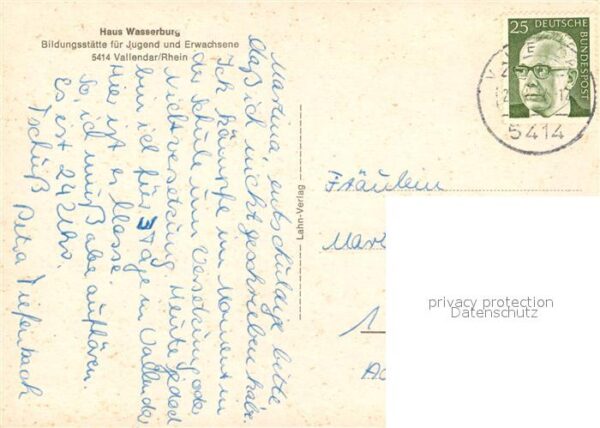 Haus Wasserburg
Bildungsstätte für Jugend und Erwachsene
5414 Vallendar/Rhein
Martina, entschuldige bitte
daß ich nicht geschrieben habe.
Ich kämpfe im Moment in
der Schule um Versetzung oder
Nichtversetzung. Heute
bin ich für 3 Tage in Vallendar
Hier ist es klasse.
So, ich muß aber aufhören.
Es ist 24 Uhr.
Tschüß Petra Tiefenbach
Lahn-Verlag
25 DEUTSCHE BUNDESPOST
5414
Fräulein
Mart
1
privacy protection
Datenschutz